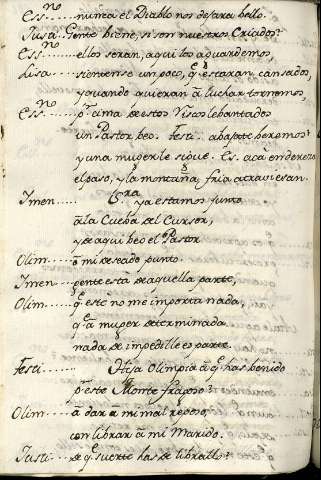 Ess.no ..... nunca el Diablo nos dejara bello.
Jusa. Gente biene, si son nuestros Criados?
Ess.no ..... ellos seran, aqui los aguardemos,
Lisa ..... sientense un poco, q.e estaran cansados,
y quando quieran â luchar tornemos,
Ess.no ..... p.r cima de estos Riscos lebantados
un Pastor beo. Festi. abaparte beremos?
y una muger le sigue. Es. acâ endereza
el paso, y la montaña fria atraviesan.
Ymen ..... ya estamos junto
â la Cueba del Cursor,
y de aqui beo el Pastor
Olim ..... ô mi deseado punto.
Ymen ..... gente estâ de aquella parte,
Olim ..... q.e este no me importa nada,
q.e â muger determinada
nada de impedille es parte.
Festi ..... Hija Olimpia â q.e has benido
p.r este Monte fragoso?
Olim ..... â dar â mi mal reposo,
con librar â mi Marido.
Justi ..... de q.e suerte has de libralle?